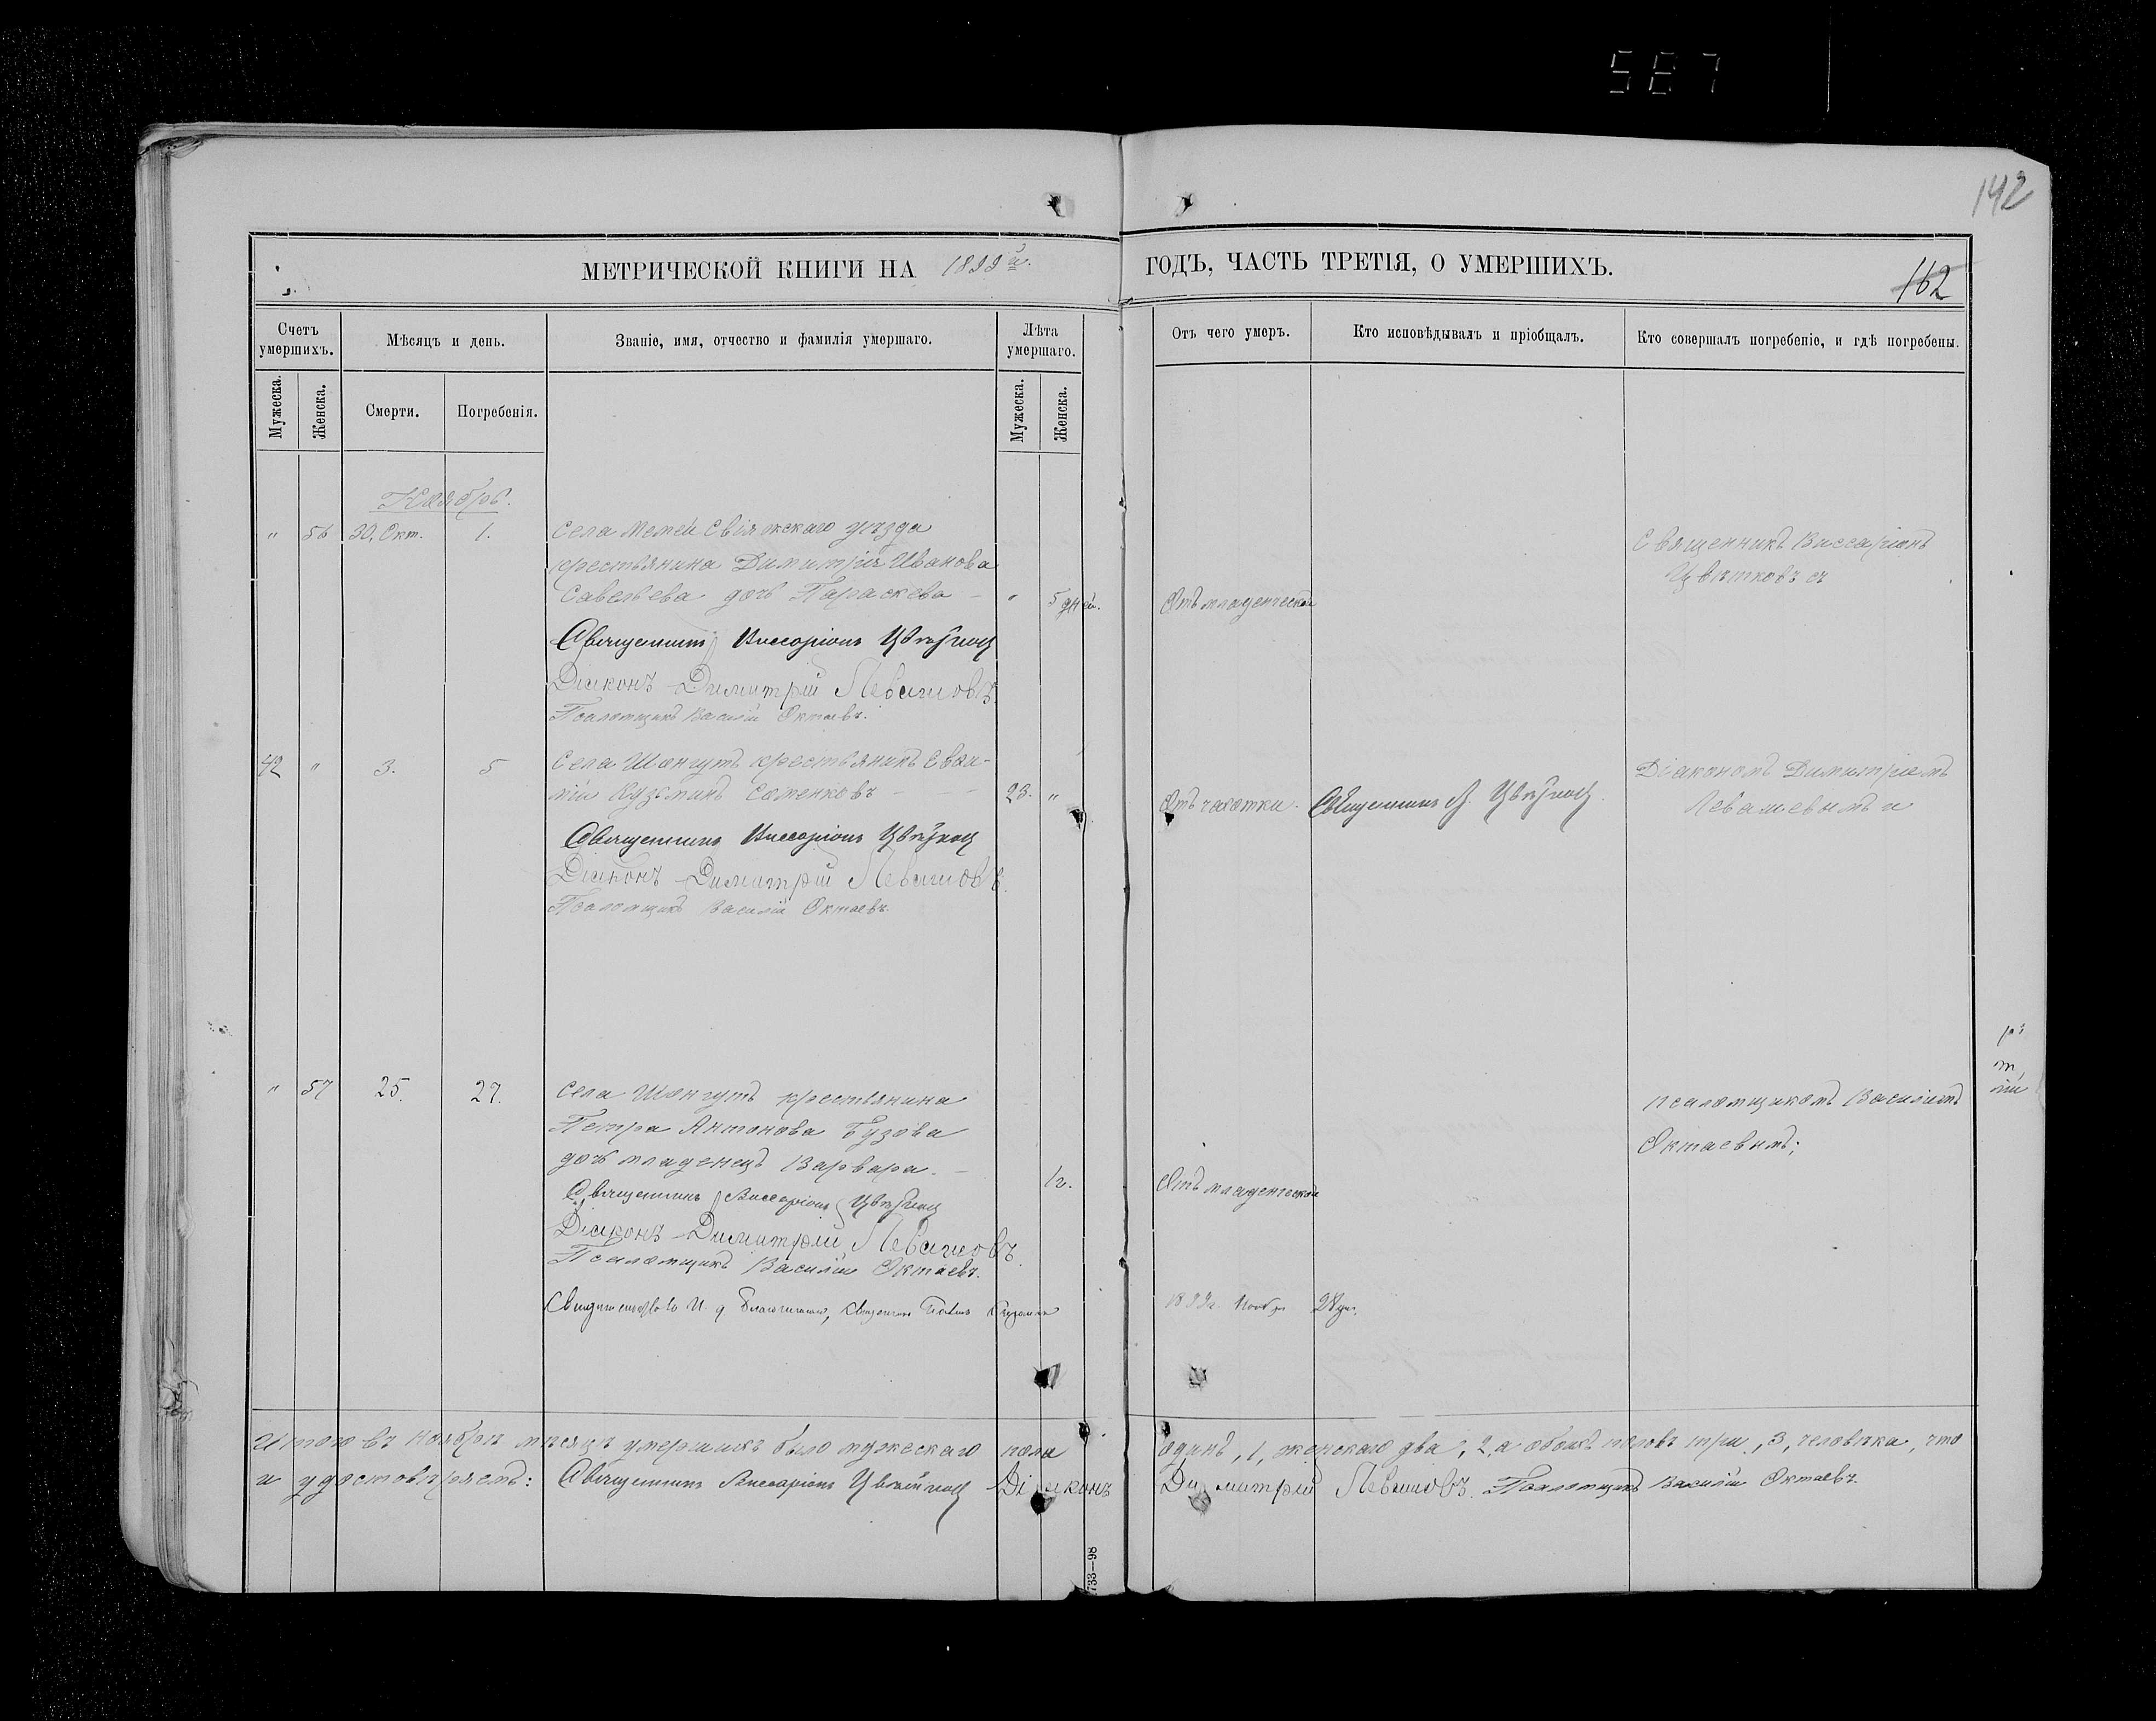 587
142
МЕТРИЧЕСКОЙ КНИГИ НА 1899й. ГОДЪ, ЧАСТЬ ТРЕТІЯ, О УМЕРШИХЪ.
162
Счетъ умершихъ.
Мѣсяцъ и день.
Званіе, имя, отчество и фамилія умершаго.
Лѣта умершаго.
Отъ чего умеръ.
Кто исповѣдывалъ и пріобщалъ.
Кто совершалъ погребеніе, и гдѣ погребены.
Мужеска.
Женска.
Смерти.
Погребенія.
Мужеска.
Женска.
Ноябрь.
" 56 30. Окт. 1. Села Мемей Свіяжскаго уѣзда
крестьянина Димитрія Иванова
Савельева дочь Параскева – " 5 дней. Отъ младенческой
Священникъ Виссаріонъ
Цвѣтковъ съ
Священникъ Виссаріонъ Цвѣтковъ
Діаконъ Димитрій Левашовъ.
Псаломщикъ Василій Октаевъ.
42 " 3. 5 Села Шонгутъ крестьянинъ Евѳи-
мій Кузьминъ 23. " Отъ чахотки. Священникъ В. Цвѣтковъ.
Діакономъ Димитріемъ
Левашевымъ и
Священникъ Виссаріонъ Цвѣтковъ
Діаконъ Димитрій Левашовъ.
Псаломщикъ Василій Октаевъ.
" 57 25. 27. Села Шонгутъ крестьянина
Петра Антонова Бузова
дочь младенецъ Варвара. – 1 г. Отъ младенческой
псаломщикомъ Василіемъ
Октаевымъ;
Священникъ Виссаріонъ Цвѣтковъ
Діаконъ Димитрій Левашовъ.
Псаломщикъ Василій Октаевъ.
Свидѣтельствовалъ И. д. Благочиннаго, Священникъ 1899 г. Ноября 28 дня.
Итого въ Ноябрѣ мѣсяцѣ умершихъ было мужескаго пола одинъ, 1, женскаго два, 2, а обоихъ половъ три, 3, человѣка, что
и удостовѣряемъ: Священникъ Виссаріонъ Цвѣтковъ Діаконъ Димитрій Левашовъ. Псаломщикъ Василій Октаевъ.
733—98